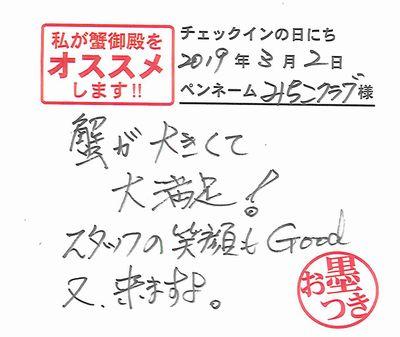 私が蟹御殿を
オススメ
します!!
チェックインの日にち
2019年3月2日
ペンネーム みちこクラブ様
蟹が大きくて
大満足!
スタッフの笑顔もGood
又、来ますよ。
お墨つき